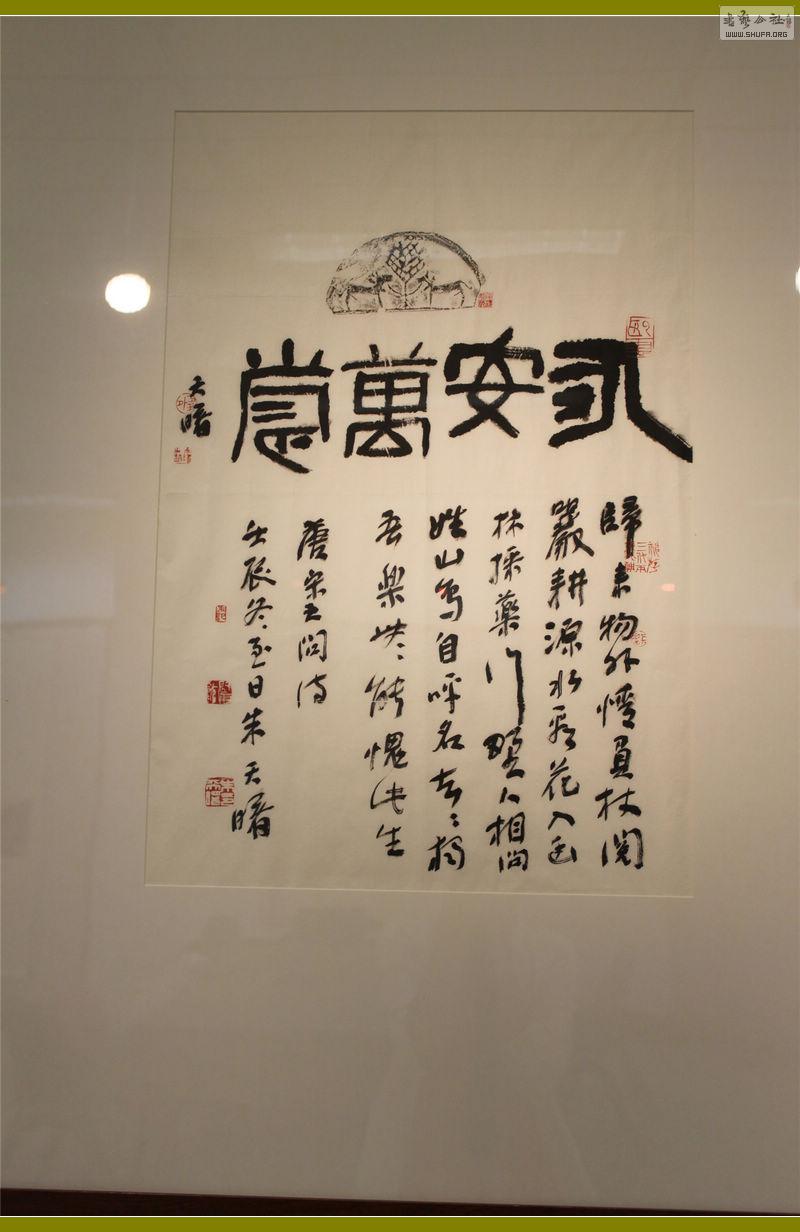 書藝公社
WWW.SHUFA.ORG
永安萬歲
天曙
歸来物外情負杖閱
巖耕源水看花入幽
林採藥行野人相問
姓山鳥自呼名去々獨
吾樂無能愧此生
唐宋之問詩
壬辰冬至日朱天曙